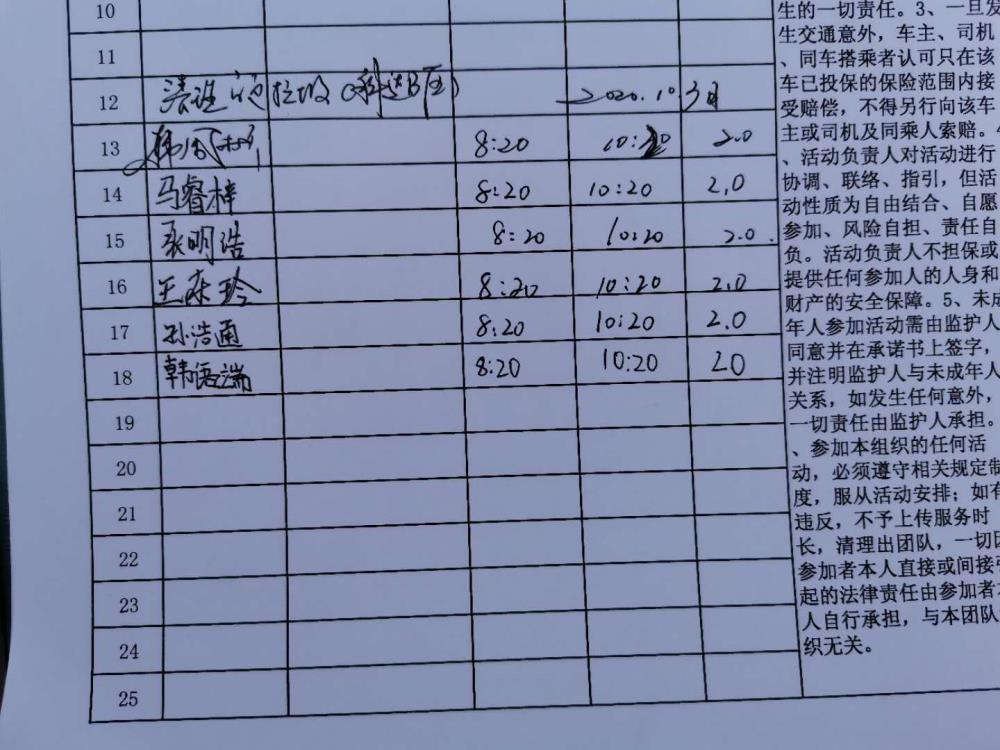 10
11
12 2020.10 3日
13 8:20 2.0
14 马睿梓 8:20 10:20 2.0
15 张明浩 8:20 10:20 2.0.
16 王 玲 8:20 10:20 2.0
17 孙浩通 8:20 10:20 2.0
18 韩语端 8:20 10:20 20
19
20
21
22
23
24
25
生的一切责任。3、一旦发
生交通意外，车主、司机
、同车搭乘者认可只在该
车已投保的保险范围内接
受赔偿，不得另行向该车
主或司机及同乘人索赔。4
、活动负责人对活动进行
协调、联络、指引，但活
动性质为自由结合、自愿
参加、风险自担、责任自
负。活动负责人不担保或
提供任何参加人的人身和
财产的安全保障。5、未成
年人参加活动需由监护人
同意并在承诺书上签字，
并注明监护人与未成年人
关系，如发生任何意外，
一切责任由监护人承担。
、参加本组织的任何活
动，必须遵守相关规定制
度，服从活动安排；如有
违反，不予上传服务时
长，清理出团队，一切因
参加者本人直接或间接引
起的法律责任由参加者本
人自行承担，与本团队
织无关。